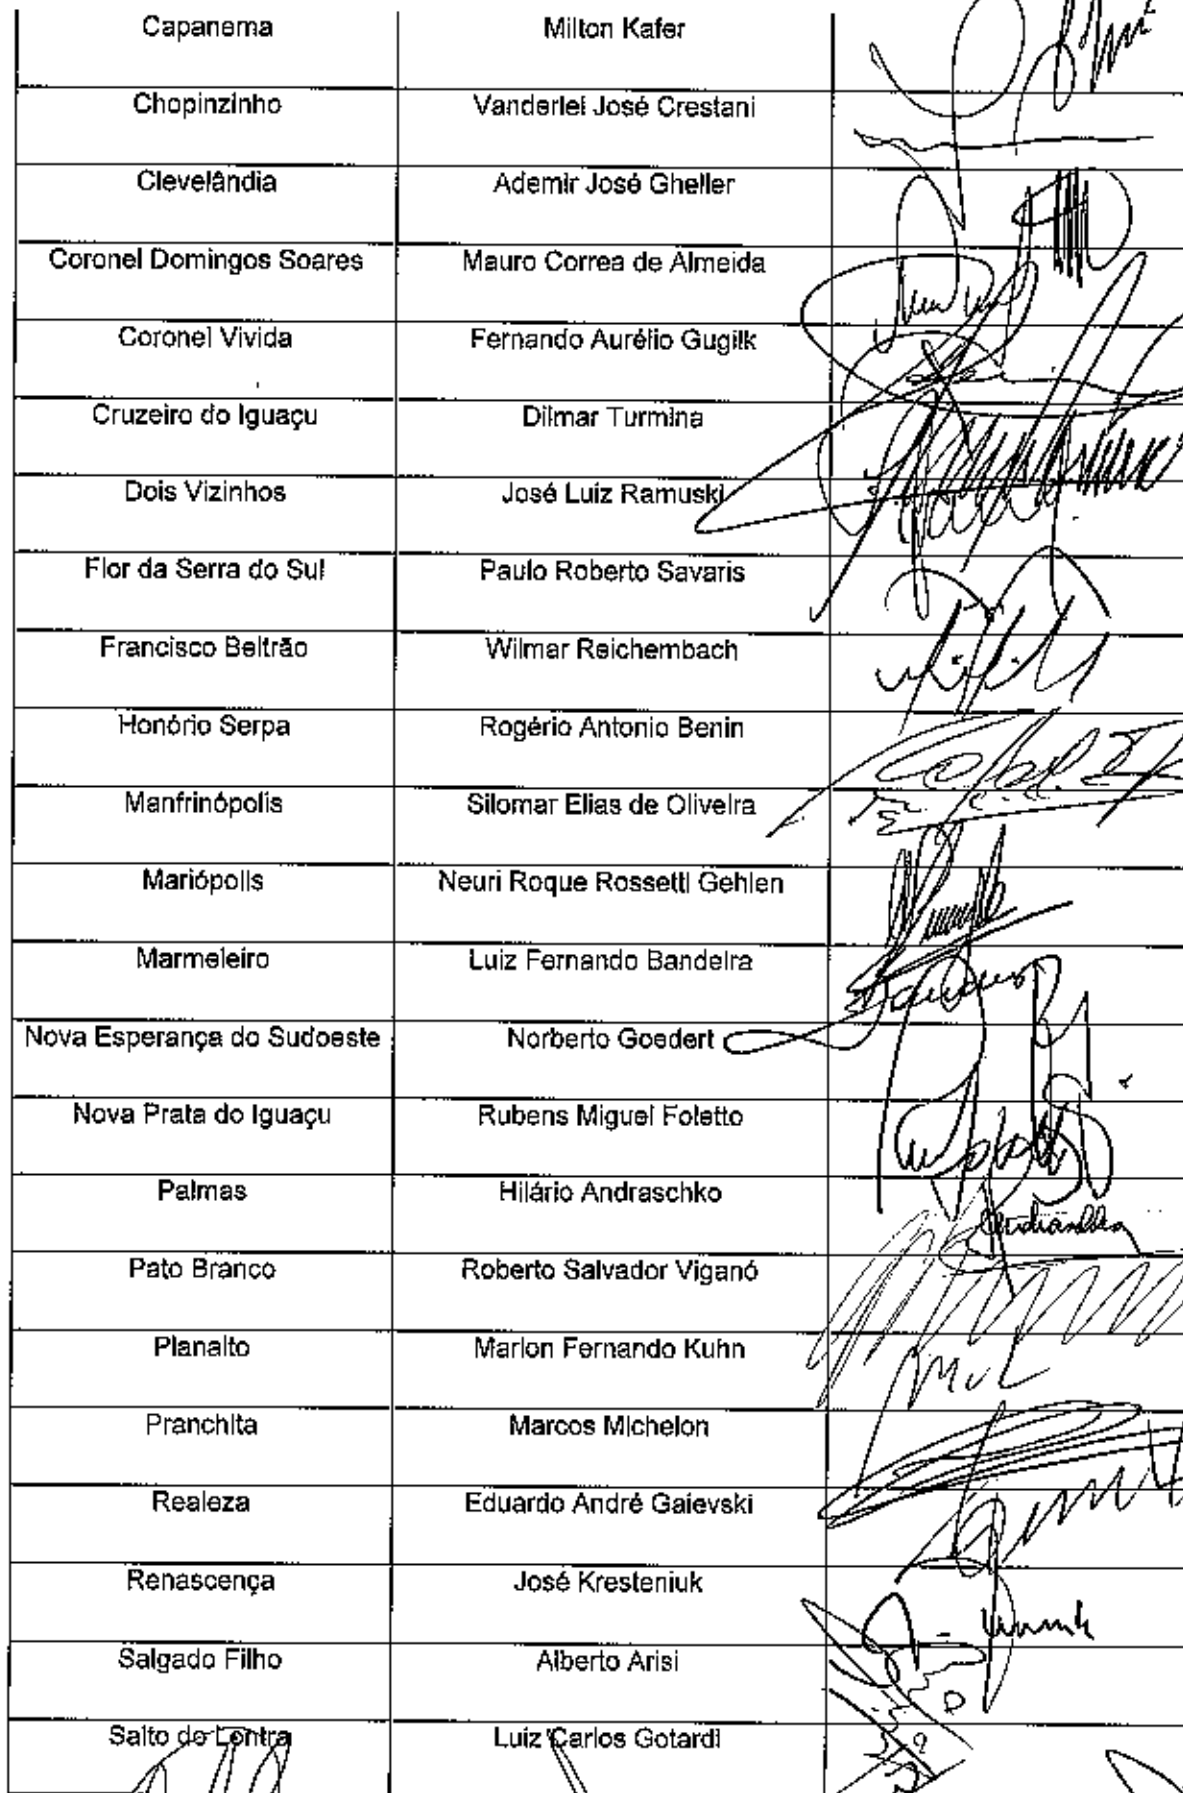 Capanema Milton Kafer
Chopinzinho Vanderlei José Crestani
Clevelândia Ademir José Gheller
Coronel Domingos Soares Mauro Correa de Almeida
Coronel Vivida Fernando Aurélio Gugilk
Cruzeiro do Iguaçu Dilmar Turmina
Dois Vizinhos José Luiz Ramuski
Flor da Serra do Sul Paulo Roberto Savaris
Francisco Beltrão Wilmar Reichembach
Honório Serpa Rogério Antonio Benin
Manfrinópolis Silomar Elias de Oliveira
Mariópolis Neuri Roque Rossetti Gehlen
Marmeleiro Luiz Fernando Bandeira
Nova Esperança do Sudoeste Norberto Goedert
Nova Prata do Iguaçu Rubens Miguel Foletto
Palmas Hilário Andraschko
Pato Branco Roberto Salvador Viganó
Planalto Marlon Fernando Kuhn
Pranchita Marcos Michelon
Realeza Eduardo André Gaievski
Renascença José Kresteniuk
Salgado Filho Alberto Arisi
Salto do Lontra Luiz Carlos Gotardi